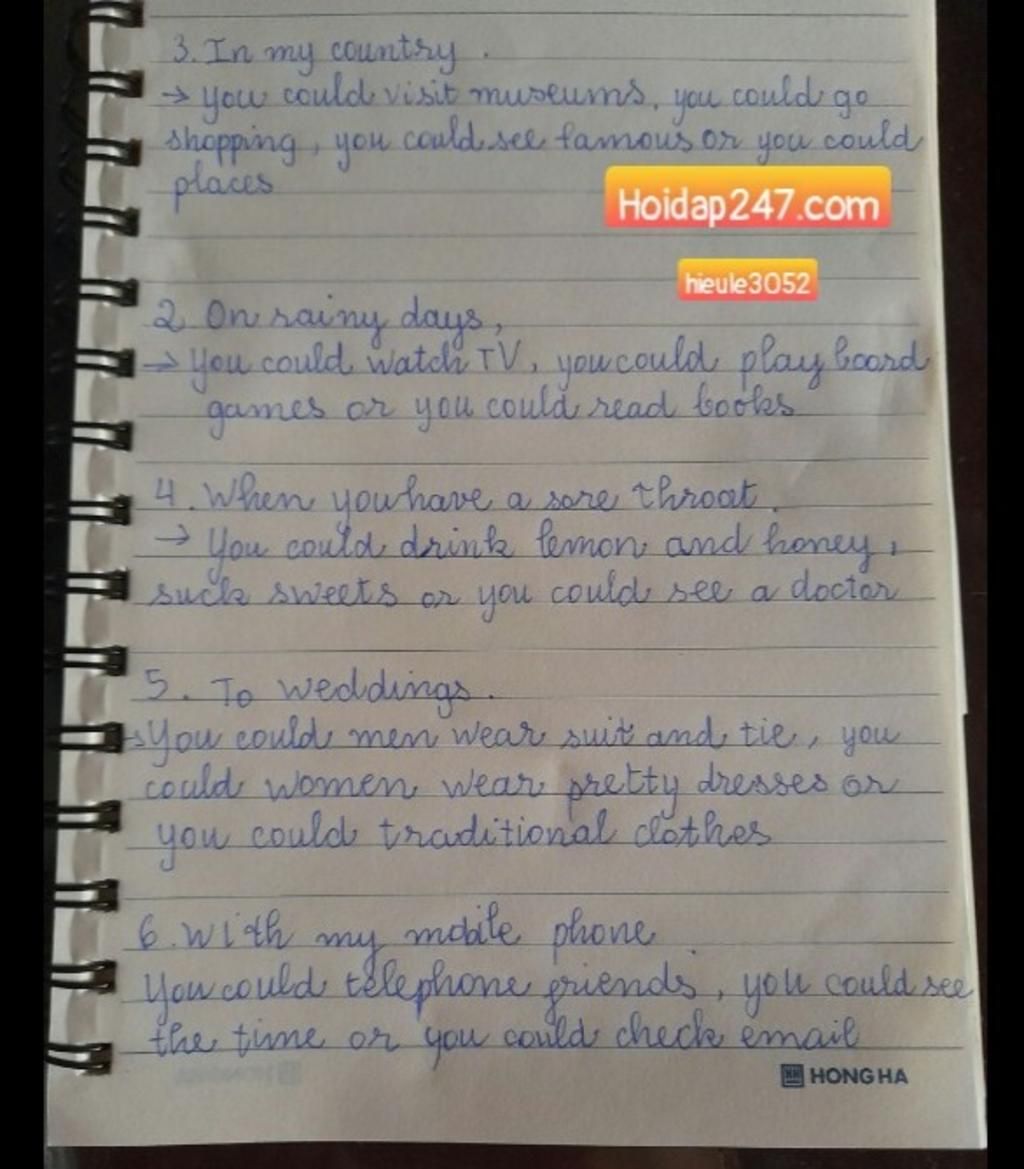 3. In my country.
→ you could visit museums, you could go
shopping, you could see famous or you could
places
Hoidap247.com
hieule3052
2 On rainy days,
→ You could watch TV, you could play board
games or you could read books
4. When you have a sore throat.
→ You could drink lemon and honey,
suck sweets or you could see a doctor
5. To weddings.
→ You could men wear suit and tie, you
could women wear pretty dresses or
you could traditional clothes
6. With my mobile phone
You could telephone friends, you could see
the time or you could check email
HONG HA